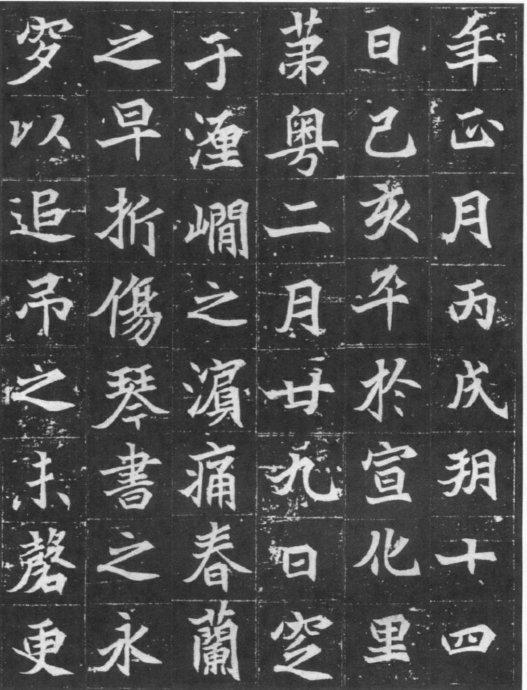 年正月丙戌朔十四
日己亥卒於宣化里
第粤二月廿九日窆
于瀍澗之濱痛春蘭
之早折傷琴書之永
穸以追吊之未罄更